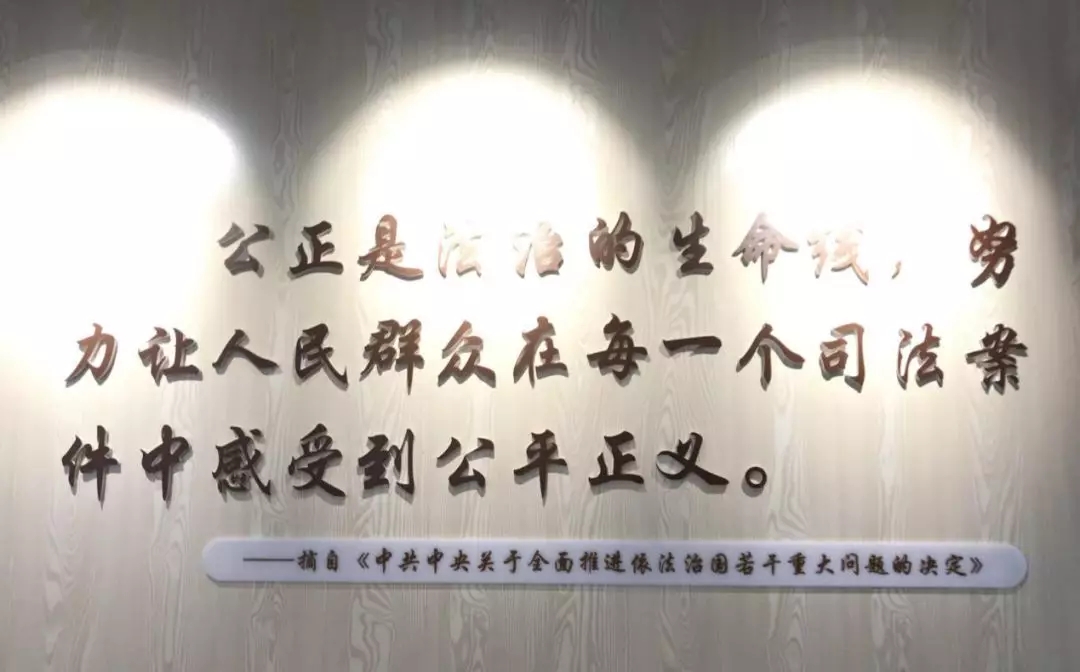 公正是法治的生命线，努
力让人民群众在每一个司法案
件中感受到公平正义。
——摘自《中共中央关于全面推进依法治国若干重大问题的决定》